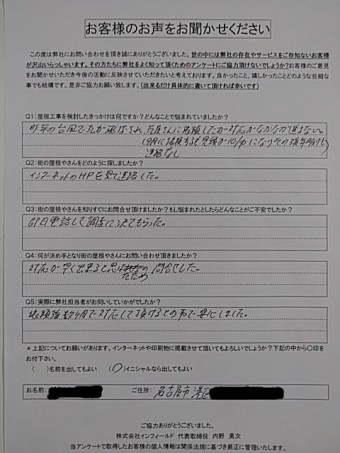 お客様のお声をお聞かせください
この度は弊社にお問い合わせを頂き誠にありがとうございました。世の中には弊社の存在やサービスをご存知ないお客様
が沢山いらっしゃいます。その方たちに弊社をよく知って頂くためのアンケートにご協力頂けないでしょうか?お客様のご意
見をお聞かせいただき今後の活動に反映させていただきたいと考えております。良かったこと、嬉しかったことどのような些細な
事でも結構です。是非ご協力お願い致します。(出来るだけ具体的に書いて頂ければ幸いです)
Q1:屋根工事を検討したきっかけは何ですか?どんなことで悩まれていましたか?
昨年の台風で瓦が飛ばされ、瓦屋さんに依頼したが対応がなかなか進まない。
連絡なし
Q2:街の屋根やさんをどのように探しましたか?
インターネットのHPを見て連絡した。
Q3:街の屋根やさんを知りすぐにお問合せ頂けましたか?もし悩まれたとしたらどんなことがご不安でしたか?
即日電話して調査に決てもらった。
Q4:何が決め手となり街の屋根やさんにお問い合わせ頂きましたか?
対応が早く出来ると思ったため 問合せした。
Q5:実際に弊社担当者がお伺いしていかがでしたか?
対応して頂けるとの事で安心しました。
*上記についてお願いがあります。インターネットや印刷物に掲載させて頂いてもよろしいでしょうか?下記の中から〇印を
お付下さい。
( )名前を出してもよい (〇)イニシャルなら出してもよい
お名前: ご住所: 名古屋市 港区
ご協力ありがとうございました。
株式会社インフィールド 代表取締役 内野 勇次
当アンケートで取得したお客様の個人情報は関係法規に基づき厳正に管理いたします。